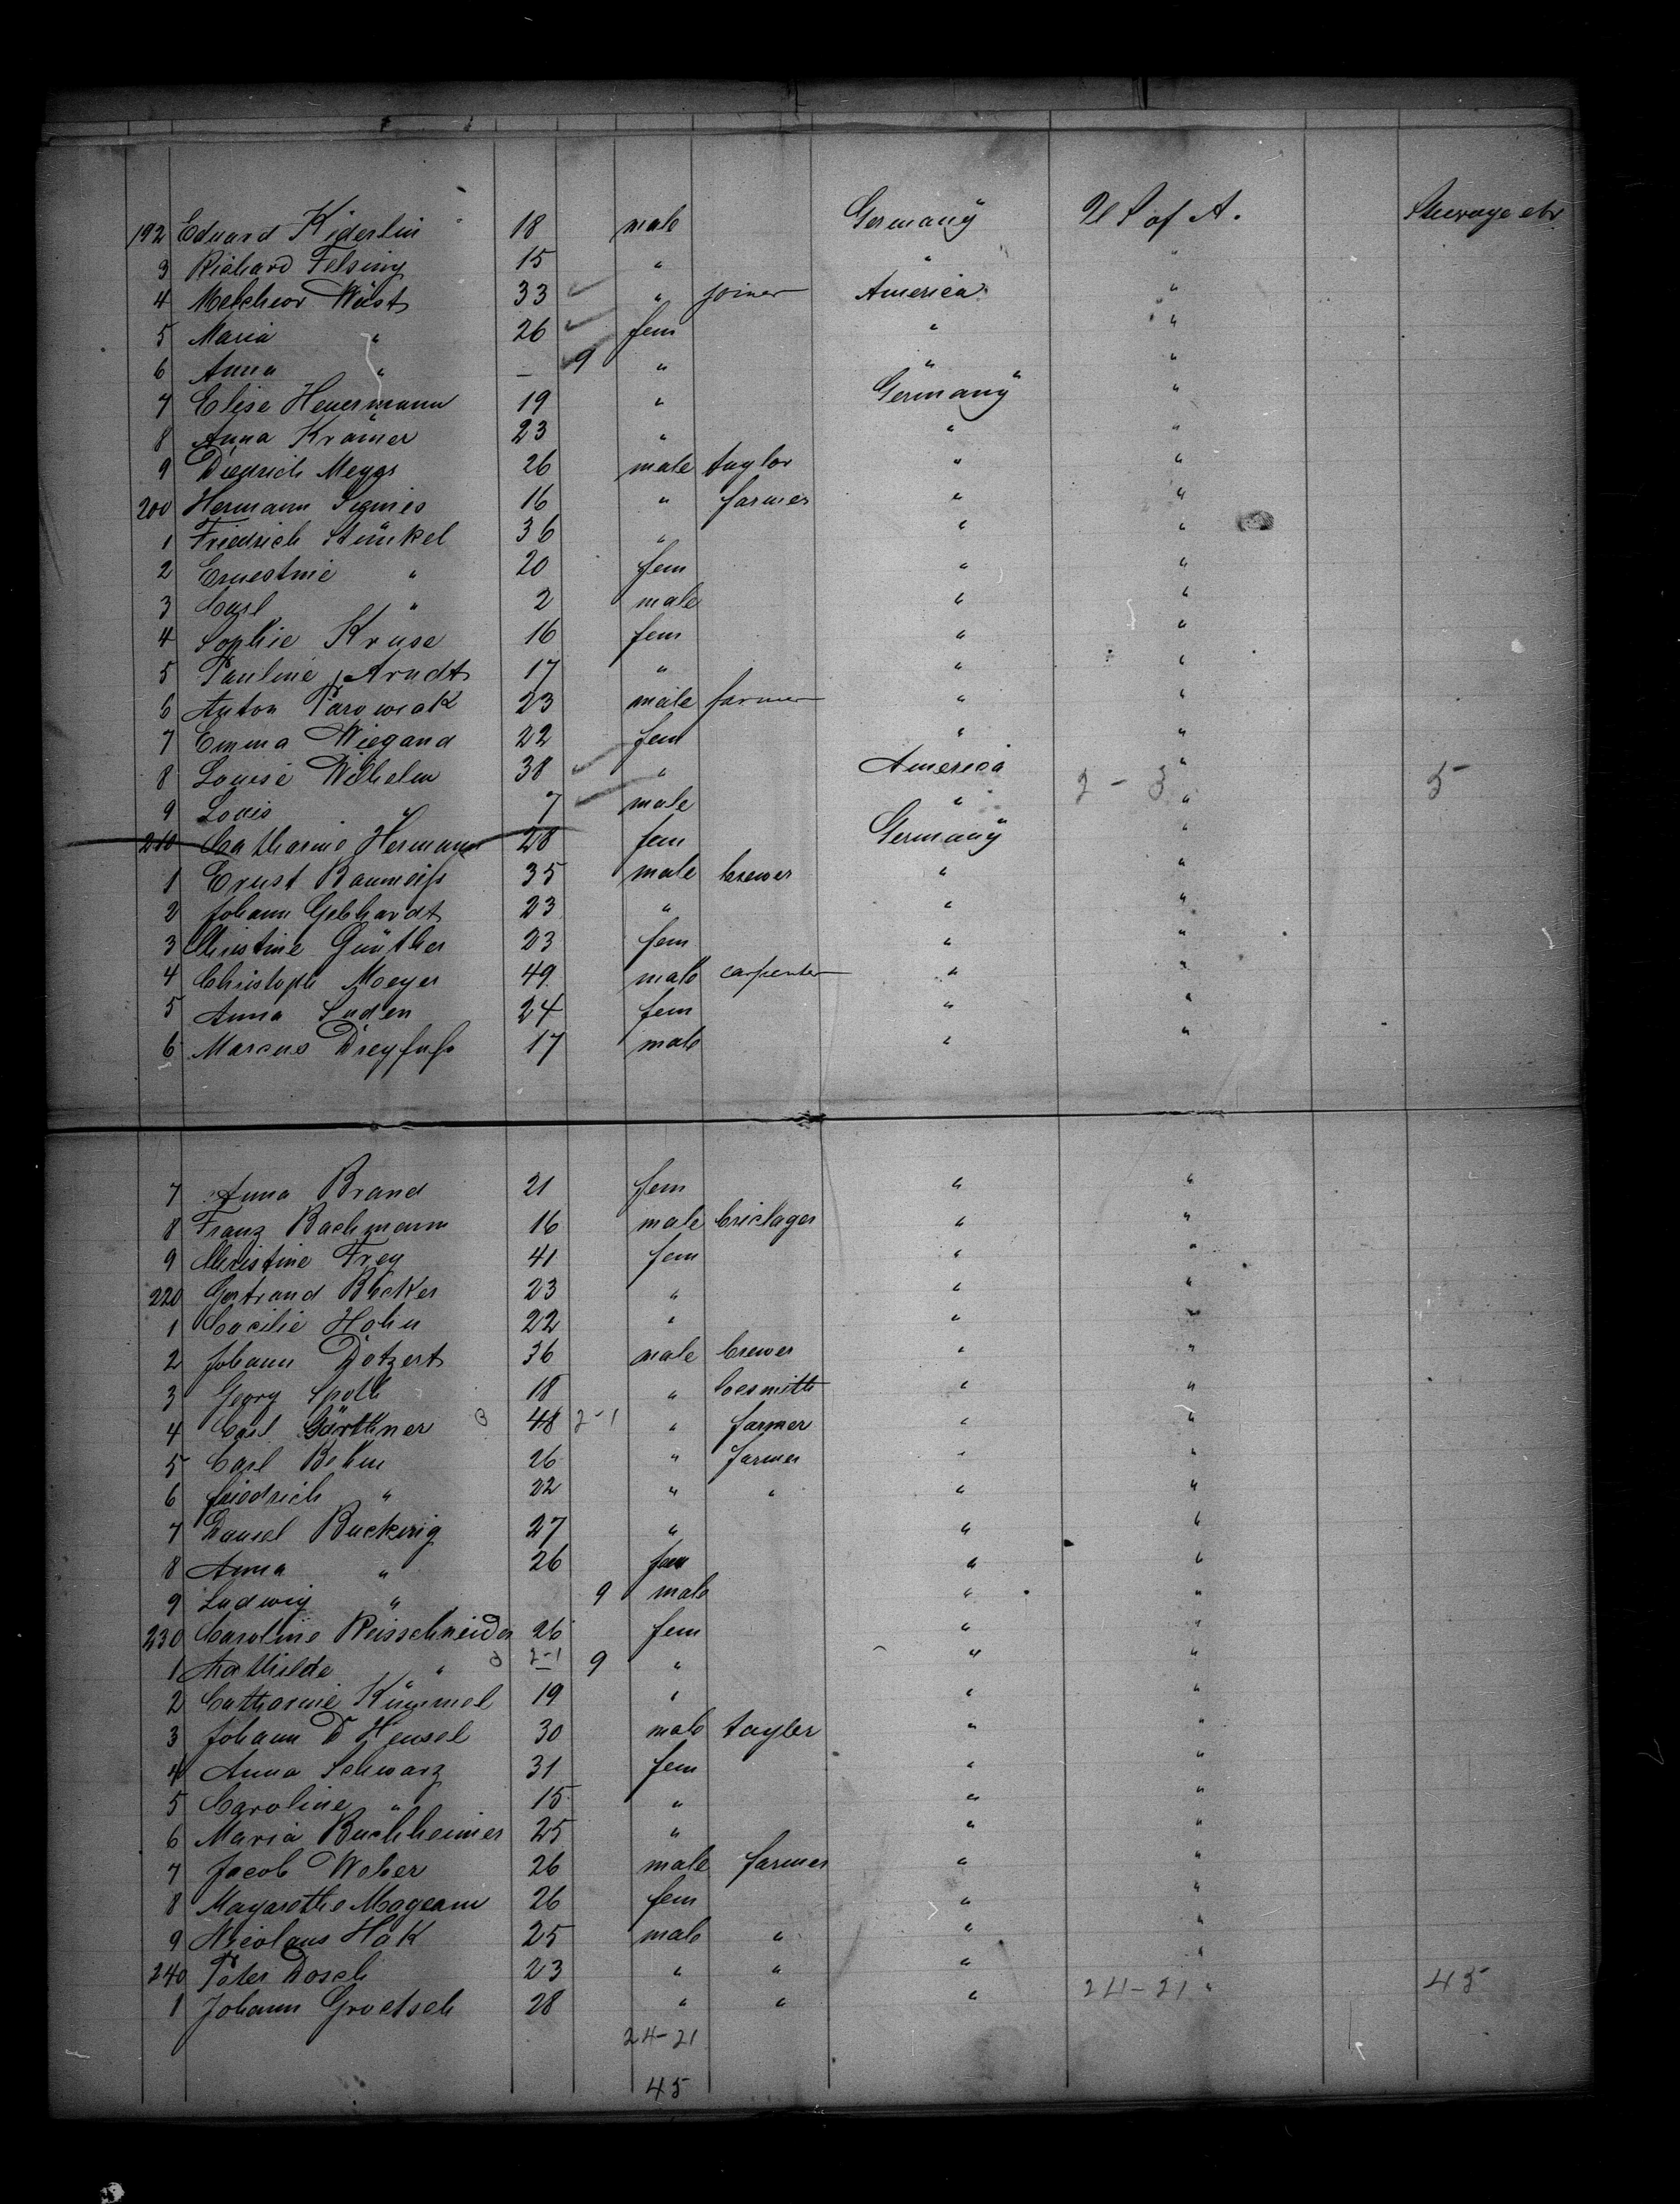 192 Eduard Kiderlin 18 male Germany U S of A. Steerage etr
3 Richard Felsing 15 " " "
4 Melchior Wüst 33 " joiner America "
5 Maria " 26 fem " "
6 Anna " — 9 " " "
7 Elise Heuermann 19 " Germany "
8 Anna Krämer 23 " " "
9 Diedrich Meyer 26 male taylor " "
200 Hermann 16 " farmer " "
1 Friedrich Stünkel 36 " " "
2 Ernestine " 20 fem " "
3 Carl " 2 male " "
4 Sophie Kruse 16 fem " "
5 Pauline Arndt 17 " " "
6 Anton Parowiak 23 male farmer " "
7 Emma Wiegand 22 fem " "
8 Louise Wilhelm 38 " America "
9 Louis " 7 male " 2 - 3 " 5
210 Catharine Hermann 28 fem Germany "
1 Ernst Baumeiß 35 male brewer " "
2 Johann Gebhardt 23 " " "
3 Christine Günther 23 fem " "
4 Christoph Moeyer 49 male carpenter " "
5 Anna Suden 24 fem " "
6 Marcus Dreyfuß 17 male " "
7 Anna Brand 21 fem " "
8 Franz Bachmann 16 male briclager " "
9 Christine Frey 41 fem " "
220 Gertraud Becker 23 " " "
1 Cacilie Hohn 22 " " "
2 Johann Dotzert 36 male brewer " "
3 Georg 18 " locsmith " "
4 Carl Gärthner 48 2-1 " farmer " "
5 Carl Behm 26 " farmer " "
6 Friedrich " 22 " " " "
7 Daniel Bucking 27 " " "
8 Anna " 26 fem " "
9 Ludwig " 9 male " "
230 Caroline Reisschneider 26 fem " "
1 Mathilde " 2-1 — 9 " " "
2 Catharine Kümmel 19 " " "
3 Johann D Hensel 30 male tayler " "
4 Anna Schwarz 31 fem " "
5 Caroline " 15 " " "
6 Maria Buchheimer 25 " " "
7 Jacob Weber 26 male farmer " "
8 Magarethe Mageam 26 fem " "
9 Nicolaus Hök 25 male " " "
240 Peter Dosch 23 " " " "
1 Johann Groetsch 28 " " " 24-21 " 45
24-21
45